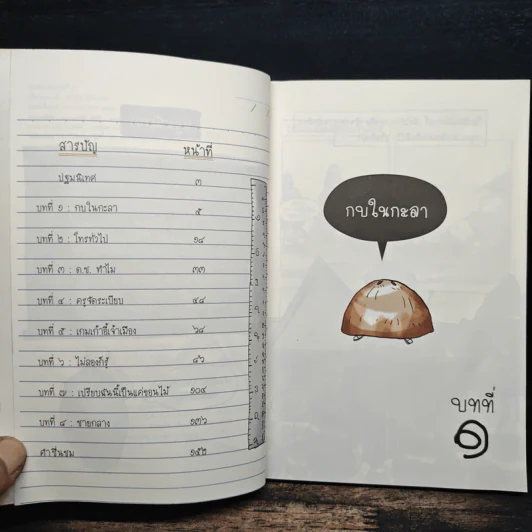 สารบัญ หน้าที่
ปฐมนิเทศ ๓
บทที่ ๑ : กบในกะลา ๕
บทที่ ๒ : ไทรทั่วไป ๑๘
บทที่ ๓ : ด.ช. ทำไม ๓๓
บทที่ ๔ : ครูจัดระเบียบ ๔๘
บทที่ ๕ : เกมเก้าอี้เจ้าเมือง ๖๘
บทที่ ๖ : ไม่ลองก็รู้ ๘๖
บทที่ ๗ : เปรียบฉันนี้เป็นแค่ขอนไม้ ๑๐๔
บทที่ ๘ : ชายกลาง ๑๓๖
คำชื่นชม ๑๕๒
กบในกะลา
บทที่
๑